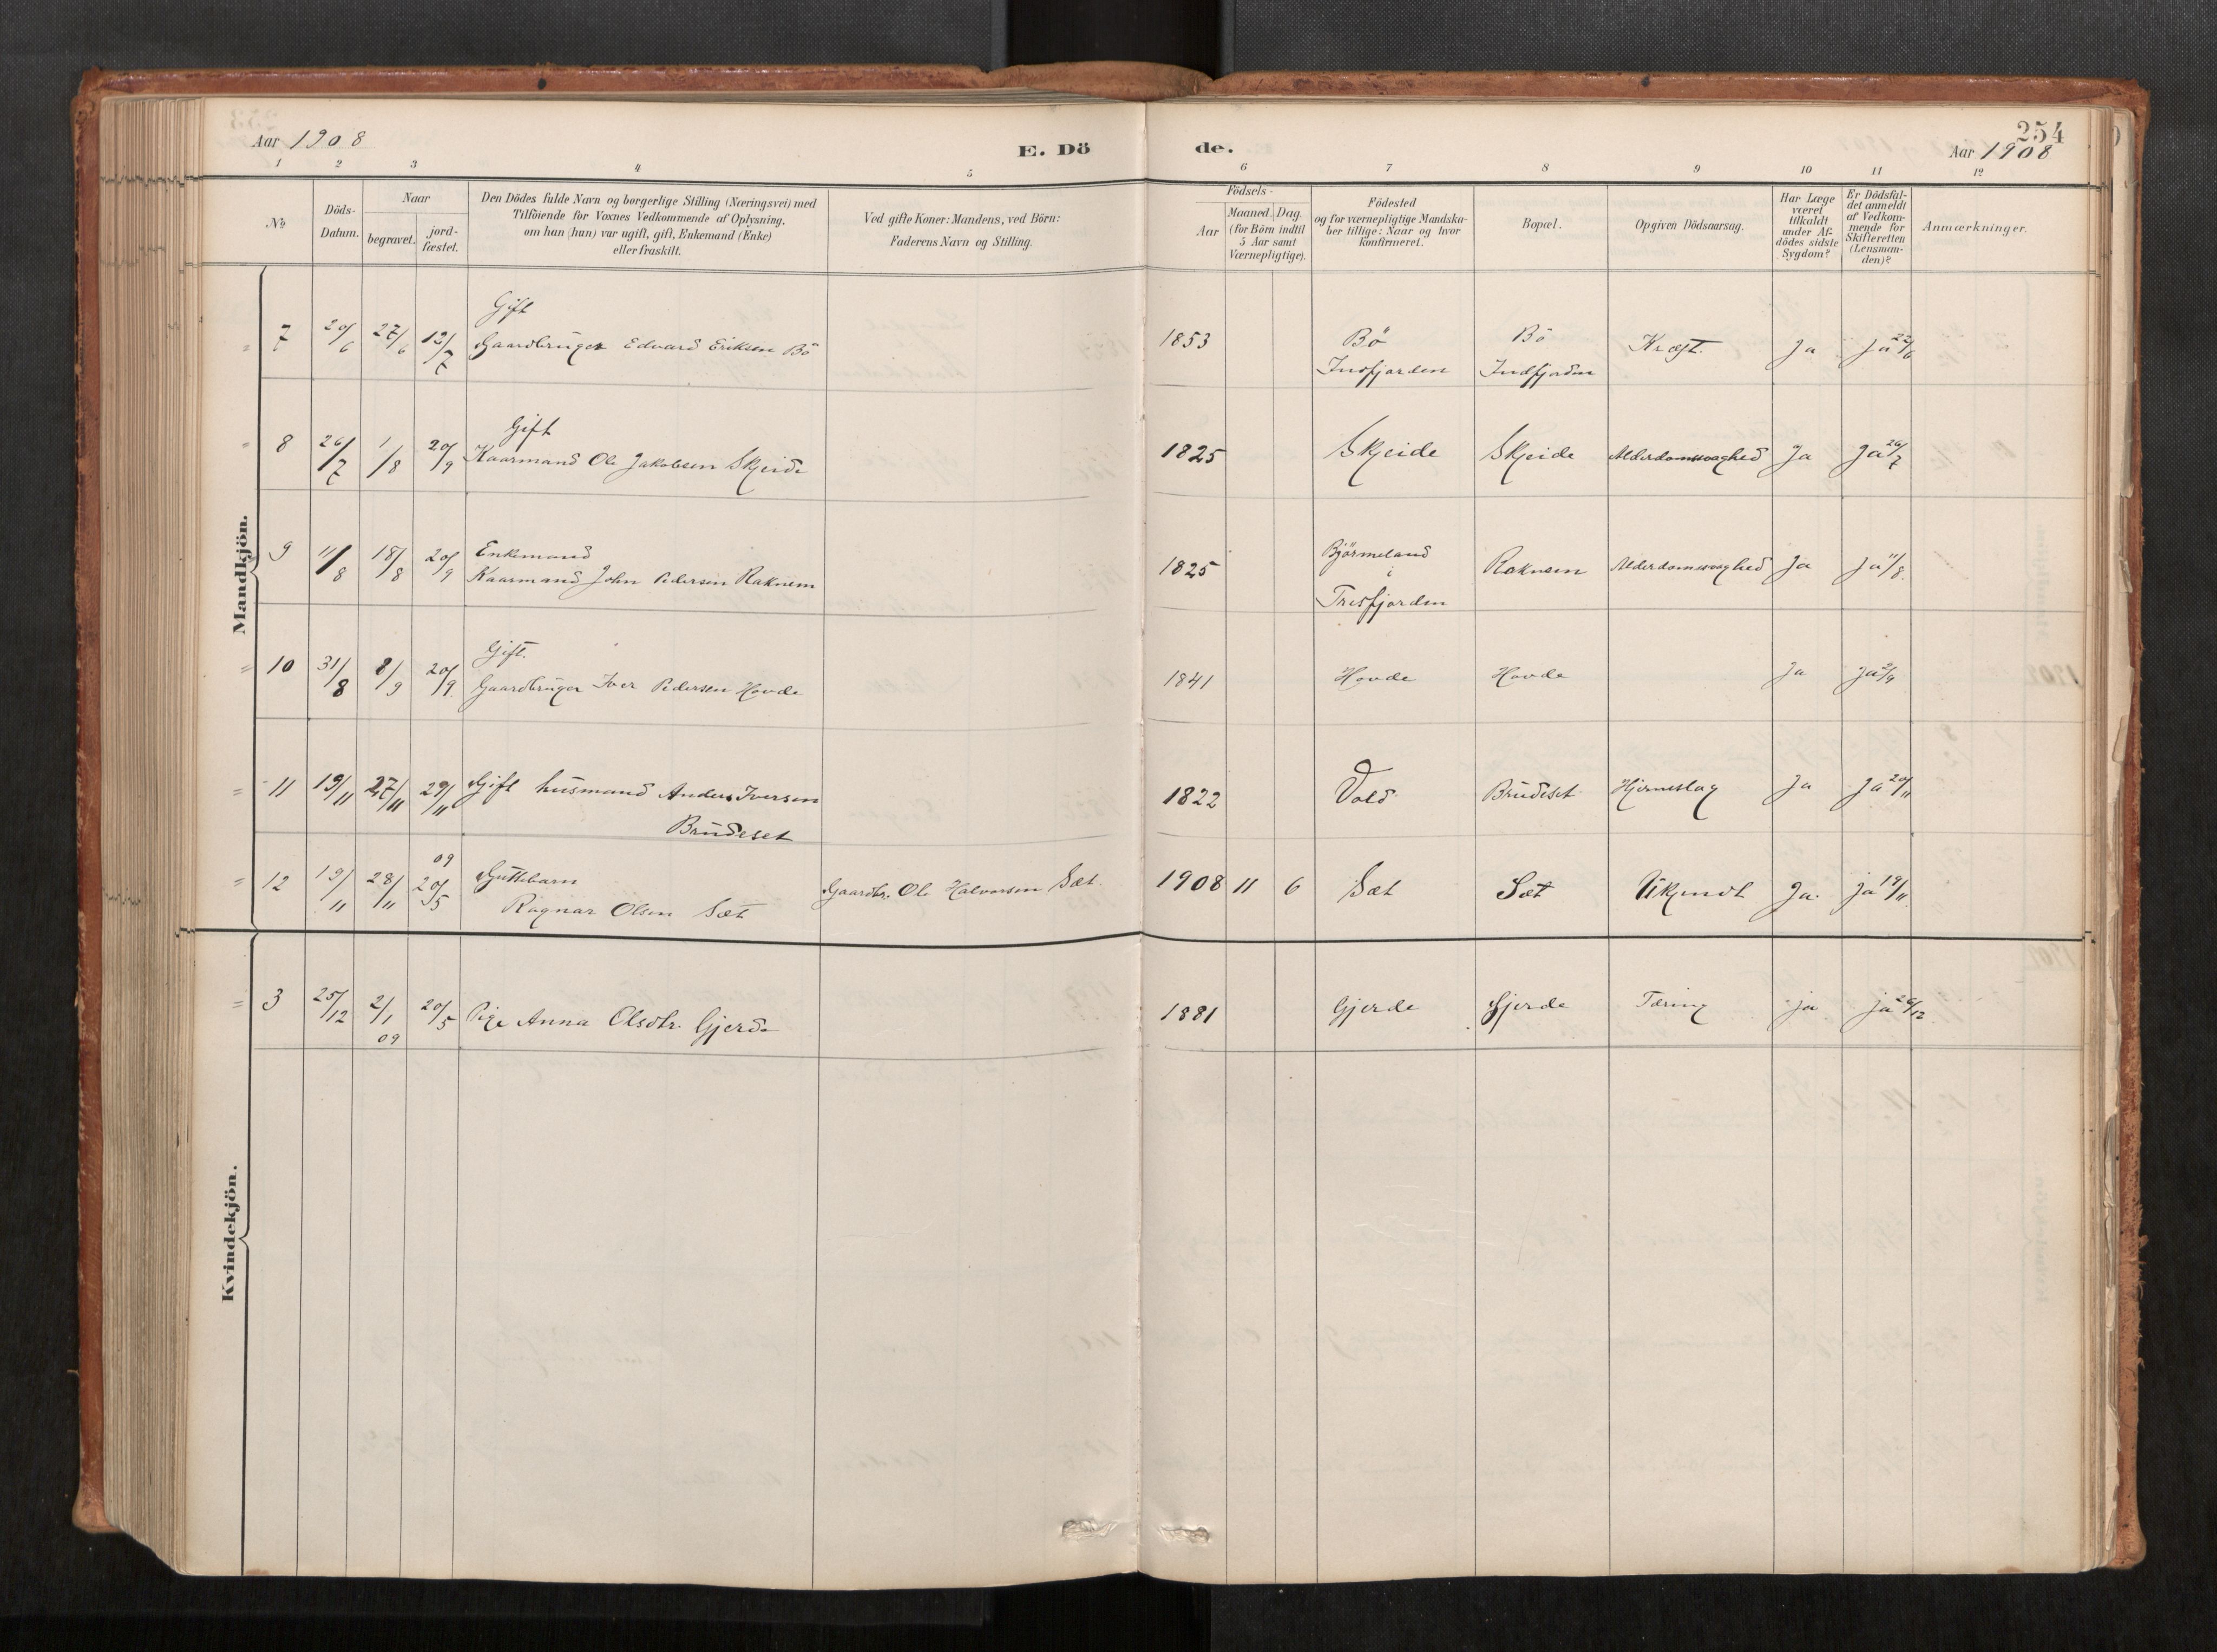 254
Aar 1908
E. Dö
de.
Aar 1908
1 2 3 4 5 6 7 8 9 10 11 12
No
Döds-
Datum.
Naar
begravet.
jord-
fæstet.
Den Dödes fulde Navn og borgerlige Stilling (Næringsvei) med
Tilföiende for Voxnes Vedkommende af Oplysning,
om han (hun) var ugift, gift, Enkemand (Enke)
eller fraskilt.
Ved gifte Koner: Mandens, ved Börn:
Faderens Navn og Stilling.
Födsels-
Aar
Maaned. Dag.
(for Börn indtil
5 Aar samt
Værnepligtige).
Födested
og for værnepligtige Mandska-
ber tillige: Naar og hvor
konfirmeret.
Bopæl.
Opgiven Dödsaarsag.
Har Læge
været
tilkaldt
under Af-
dödes sidste
Sygdom?
Er Dödsfal-
det anmeldt
af Vedkom-
mende for
Skifteretten
(Lensman-
den)?
Anmærkninger.
Mandkjön.
Gift
7 20/6 27/6 12/7 Gaardbruger Edvard Eriksen Bö 1853 Bö Bö Kræft. Ja Ja 22/6
Insfjorden Indfjorden
Gift
8 26/7 1/8 20/9 Kaarmand Ole Jakobsen Skjeide 1825 Skjeide Skjeide Alderdomssvaghed Ja Ja 26/7
Enkemand Björmeland
9 11/8 18/8 20/9 Kaarmand John Pedersen Raknem 1825 i Raknem Alderdomssvaghed Ja Ja 11/8.
Tresfjorden
Gift.
10 31/8 8/9 20/9 Gaardbruger Iver Pedersen Hovde 1841 Hovde Hovde Ja Ja 2/9
11 19/11 27/11 29/11 Gift husmand Anders Iversen 1822 Vold Brüdeset Hjerneslag Ja Ja 20/11
Brüdeset
09
12 19/11 28/11 20/5 Guttebarn Gaardbr. Ole Halvorsen Sæt. 1908 11 6 Sæt Sæt Ukjendt Ja. Ja 19/11.
Ragnar Olsen Sæt
Kvindekjön.
3 25/12 2/1 20/5 Pige Anna Olsdtr. Gjerde 1881 Gjerde Gjerde Tæring ja ja 26/12
09